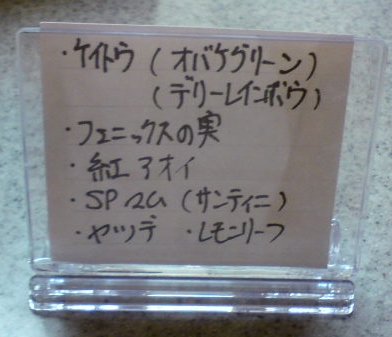 ・ケイトウ（オバケグリーン）
（デリーレインボウ）
・フェニックスの実
・紅アオイ
・SPマム（サンティニ）
・ヤツデ ・レモンリーフ